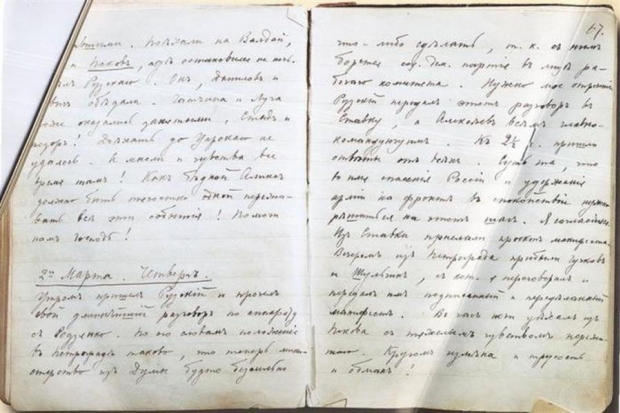 занятыми. Поѣхали на Валдай,
и Псковъ, гдѣ остановились на ночь.
Рузскаго. Онъ, Даниловъ и
обѣдали. Гатчина и Луга
тоже оказались занятыми. Стыдъ и
позоръ! Доѣхать до Царскаго не
удалось. А мысли и чувства все
время тамъ! Какъ бѣдной Аликсъ
должно быть тягостно одной пережи-
вать всѣ эти событія! Помоги
намъ Господь!
2го Марта. Четвергъ.
Утромъ пришелъ Рузскій и прочелъ
свой длиннѣйшій разговоръ по аппарату
съ Родзянко. По его словамъ положеніе
въ Петроградѣ таково, что теперь мин
истерство изъ Думы будто безсильно
67.
что-либо сдѣлать, т. к. съ нимъ
борется соц. дем. партія въ лицѣ ра-
бочаго комитета. Нужно мое отреченіе
Рузскій передалъ этотъ разговоръ въ
Ставку, а Алексѣевъ всѣмъ главно-
командующимъ. Къ 2½ ч. пришли
отвѣты отъ всѣхъ. Суть та, что
во имя спасенія Россіи и удержанія
арміи на фронтѣ въ спокойствіи нужно
рѣшиться на этотъ шагъ. Я согласился
Изъ Ставки прислали проектъ манифеста.
Вечеромъ изъ Петрограда прибыли Гучковъ
и Шульгинъ, съ кот. я переговорилъ и
передалъ имъ подписанный и передѣланный
манифестъ. Въ часъ ночи уѣхалъ изъ
Пскова съ тяжелымъ чувствомъ пережи-
таго. Кругомъ измѣна и трусость
и обманъ!